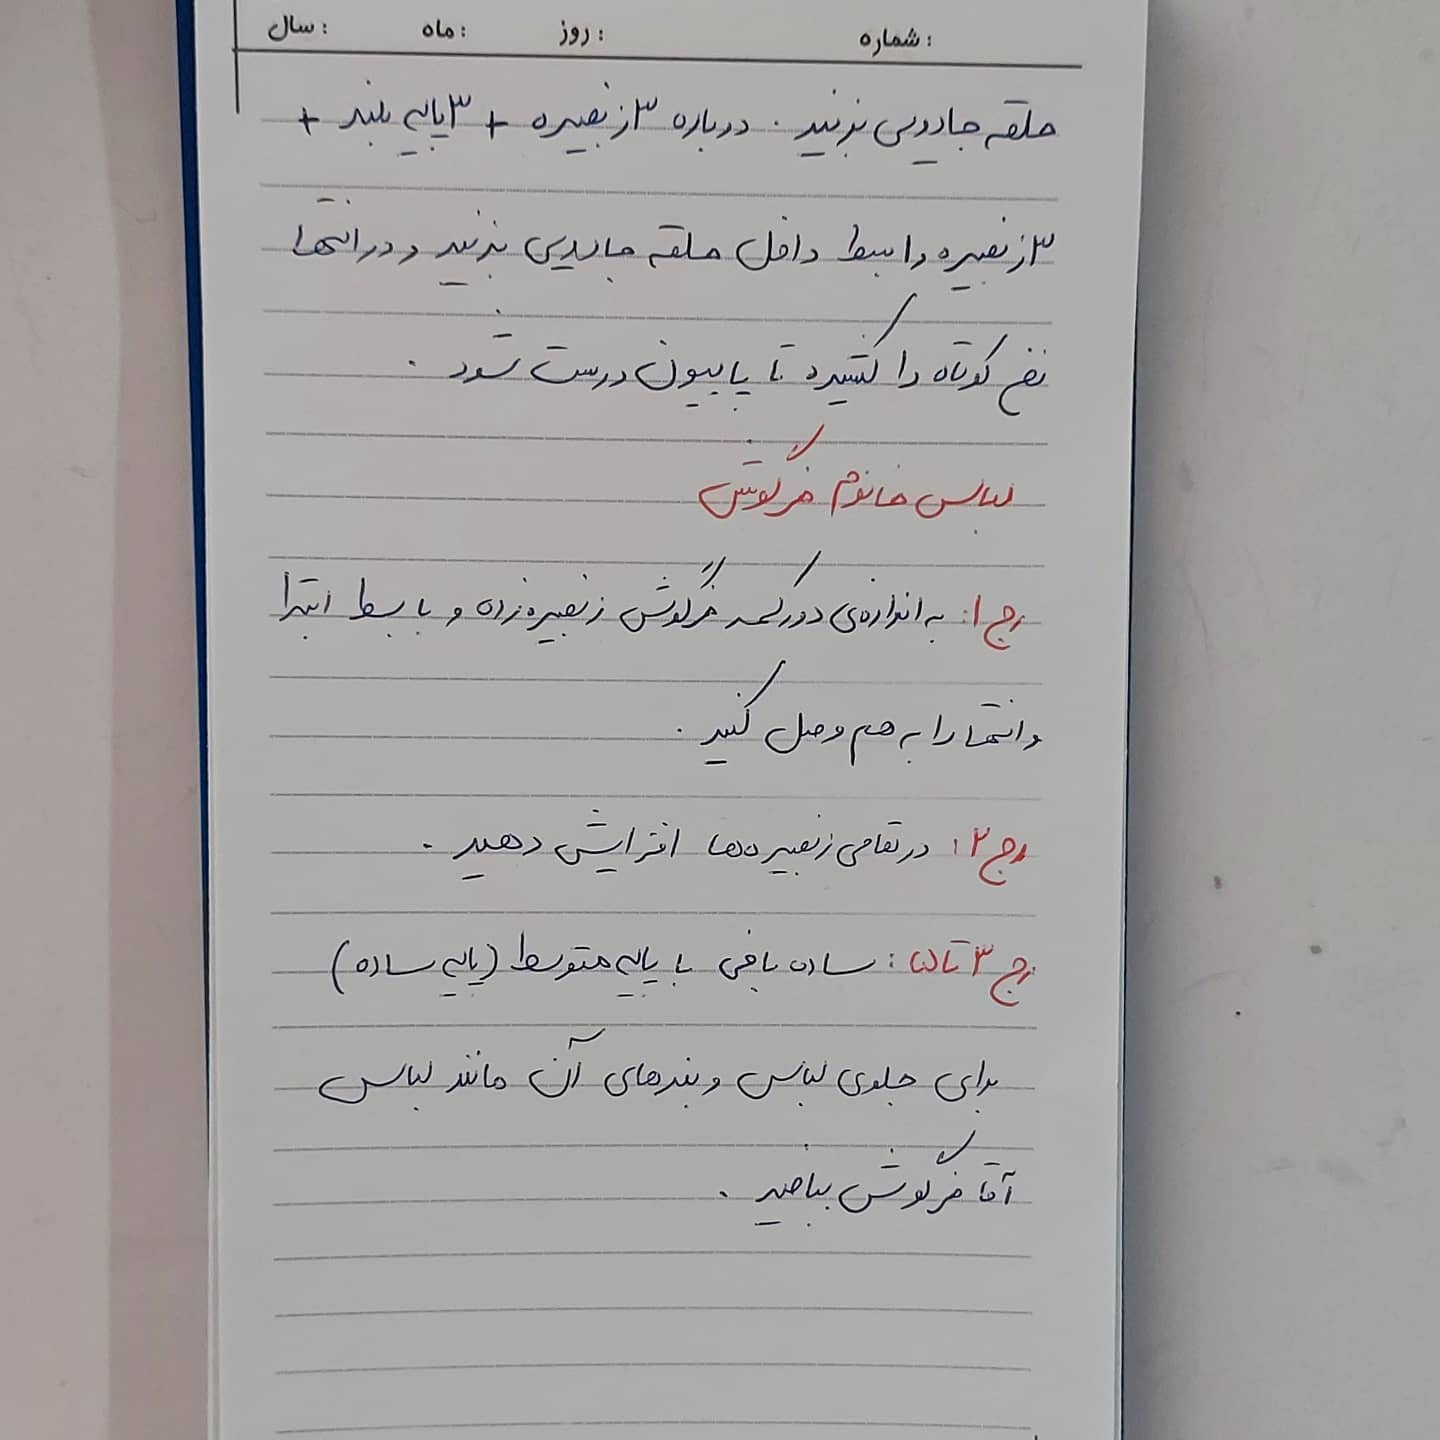 شماره : روز : ماه : سال :
حلقه جادویی بزنید . درباره ۳ زنجیره + ۳ پایه بلند +
۳ زنجیره را بسط داخل حلقه جادویی بزنید و در انتها
نخ کوتاه را کشیده تا پاپیون درست شود .
لباس خانوم خرگوش
رج ۱: به اندازه‌ی دور کمر خرگوش زنجیره زده و با بسط ابتدا
و انتها را به هم وصل کنید .
رج ۲: در تمامی زنجیره‌ها افزایش دهید .
رج ۳ تا : ساده بافی با پایه متوسط (پایه ساده)
برای جلوی لباس و بندهای آن مانند لباس
آقا خرگوش ببافید .